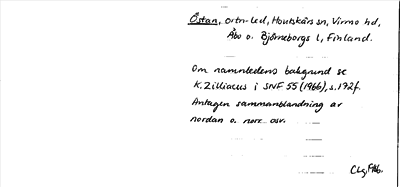 Östan, ortn-led, Houtskärs sn, Virmo hd,
Åbo o. Björneborgs l, Finland.
Om namnledens bakgrund se
K. Zilliacus i SNF 55 (1966), s. 172f.
Antagen sammanblandning av
nordan o. norr osv.